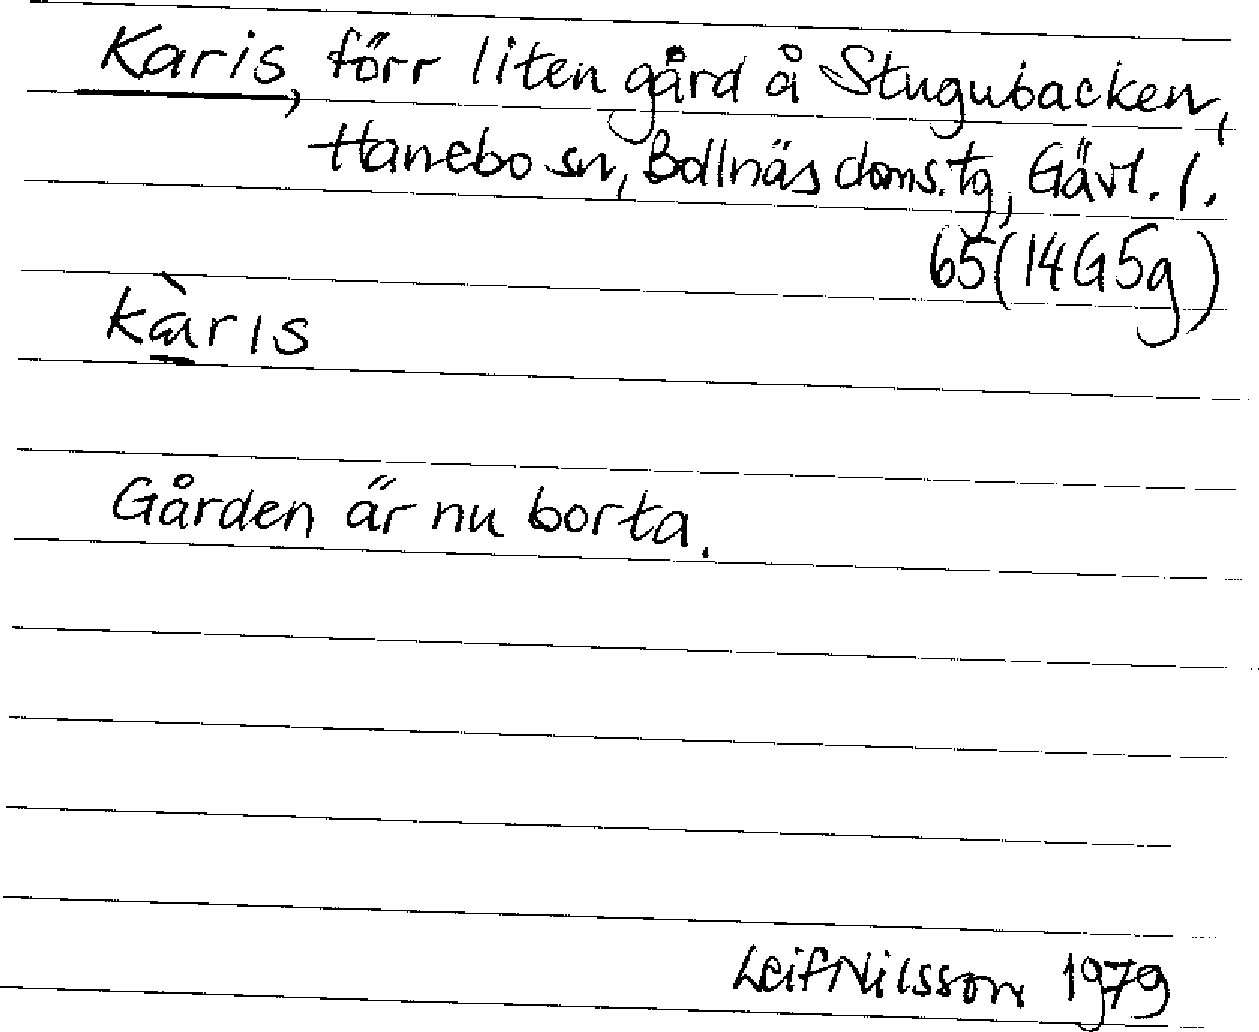 Karis, förr liten gård å Stugubacken,
Hanebo sn, Bollnäs doms.tg, Gävl. l.
65(14G5g)
kàrıs
Gården är nu borta.
Leif Nilsson 1979